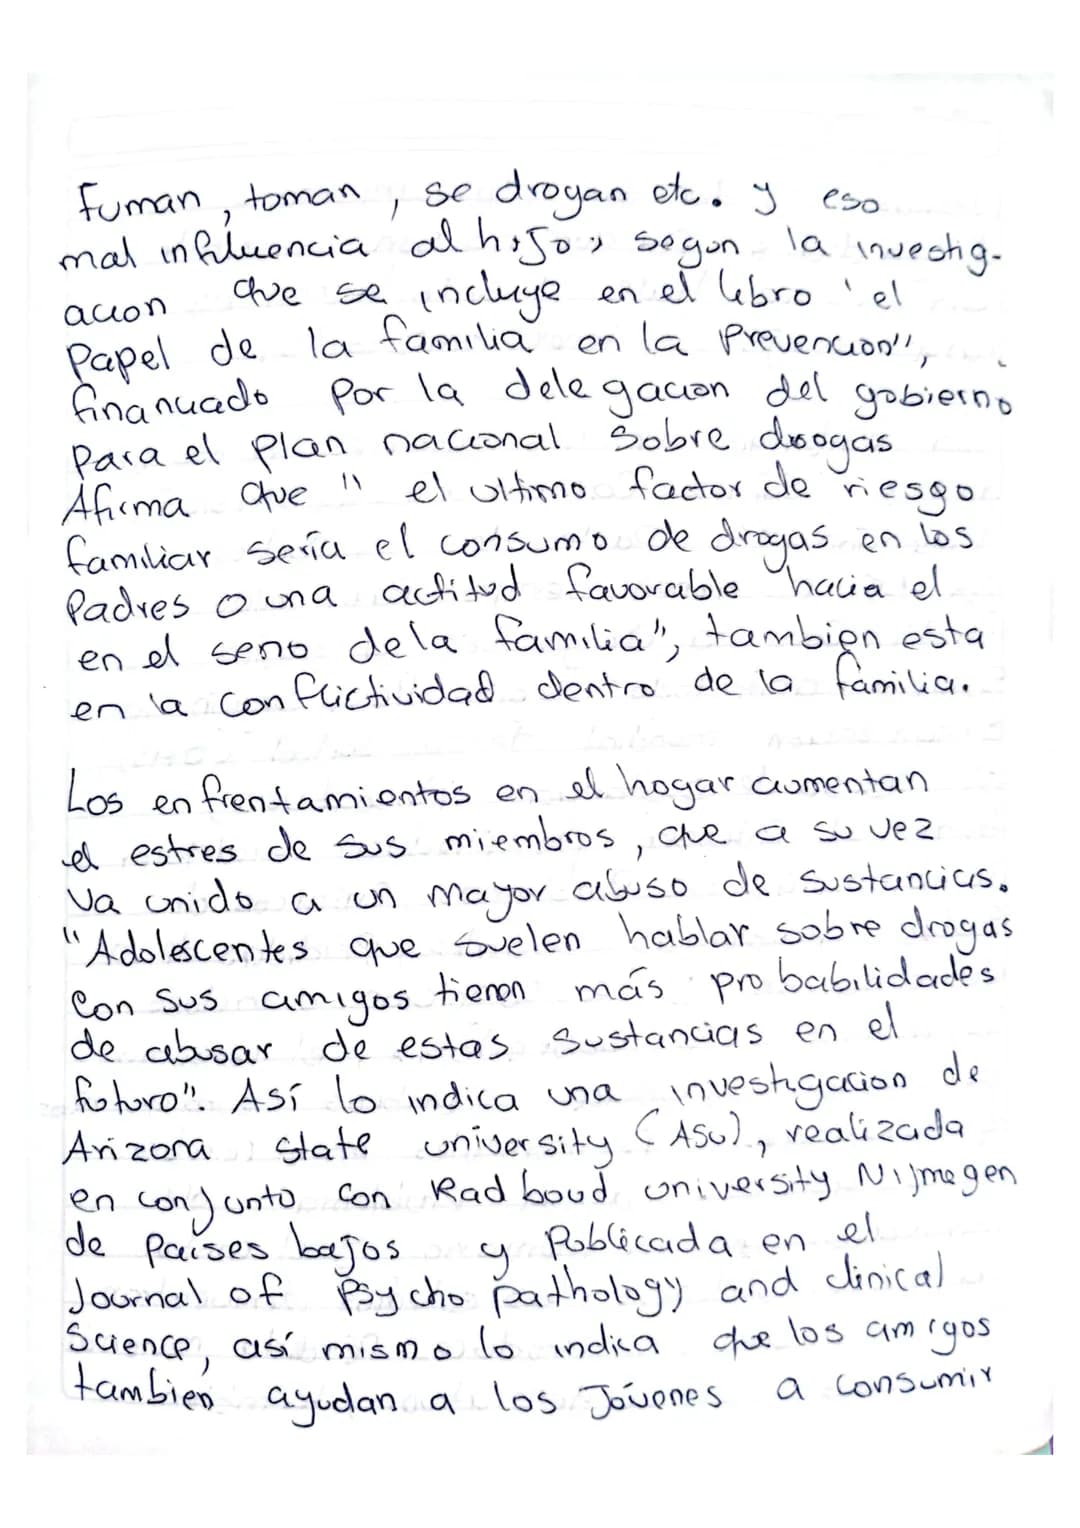 Fuman, toman, se drogan etc. y eso
mal influencia al hijo, segun la investig-
acion que se incluye en el libro 'el
Papel de la familia en la Prevencion",
financiado Por la delegacion del gobierno
para el plan nacional sobre drogas
Afirma que " el ultimo factor de riesgo
familiar sería el consumo de drogas en los
Padres o una actitud favorable hacia el
en el seno de la familia", tambien esta
en la conflictividad dentro de la familia.
Los enfrentamientos en el hogar aumentan
el estres de sus miembros, que a su vez
va unido a un mayor abuso de sustancias.
"Adolescentes que suelen hablar sobre drogas
con sus amigos tienen más probabilidades
de abusar de estas sustancias en el
futuro". Así lo indica una investigacion de
Arizona state university (ASU), realizada
en conjunto con Radboud university Nijmegen
de países bajos y Publicada en el
Journal of Psychopathology and clinical
Science, así mismo lo indica que los amigos
tambien ayudan a los Jóvenes a consumir